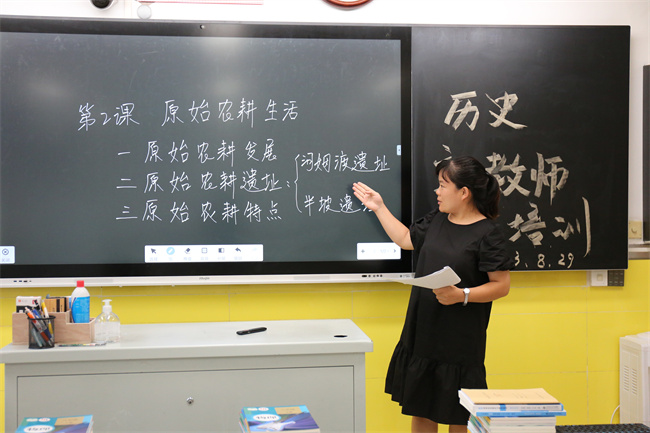 第2课 原始农耕生活
一 原始农耕发展
二 原始农耕遗址：
河姆渡遗址
半坡遗
三 原始农耕特点
历史
教师
培训
3.8.29